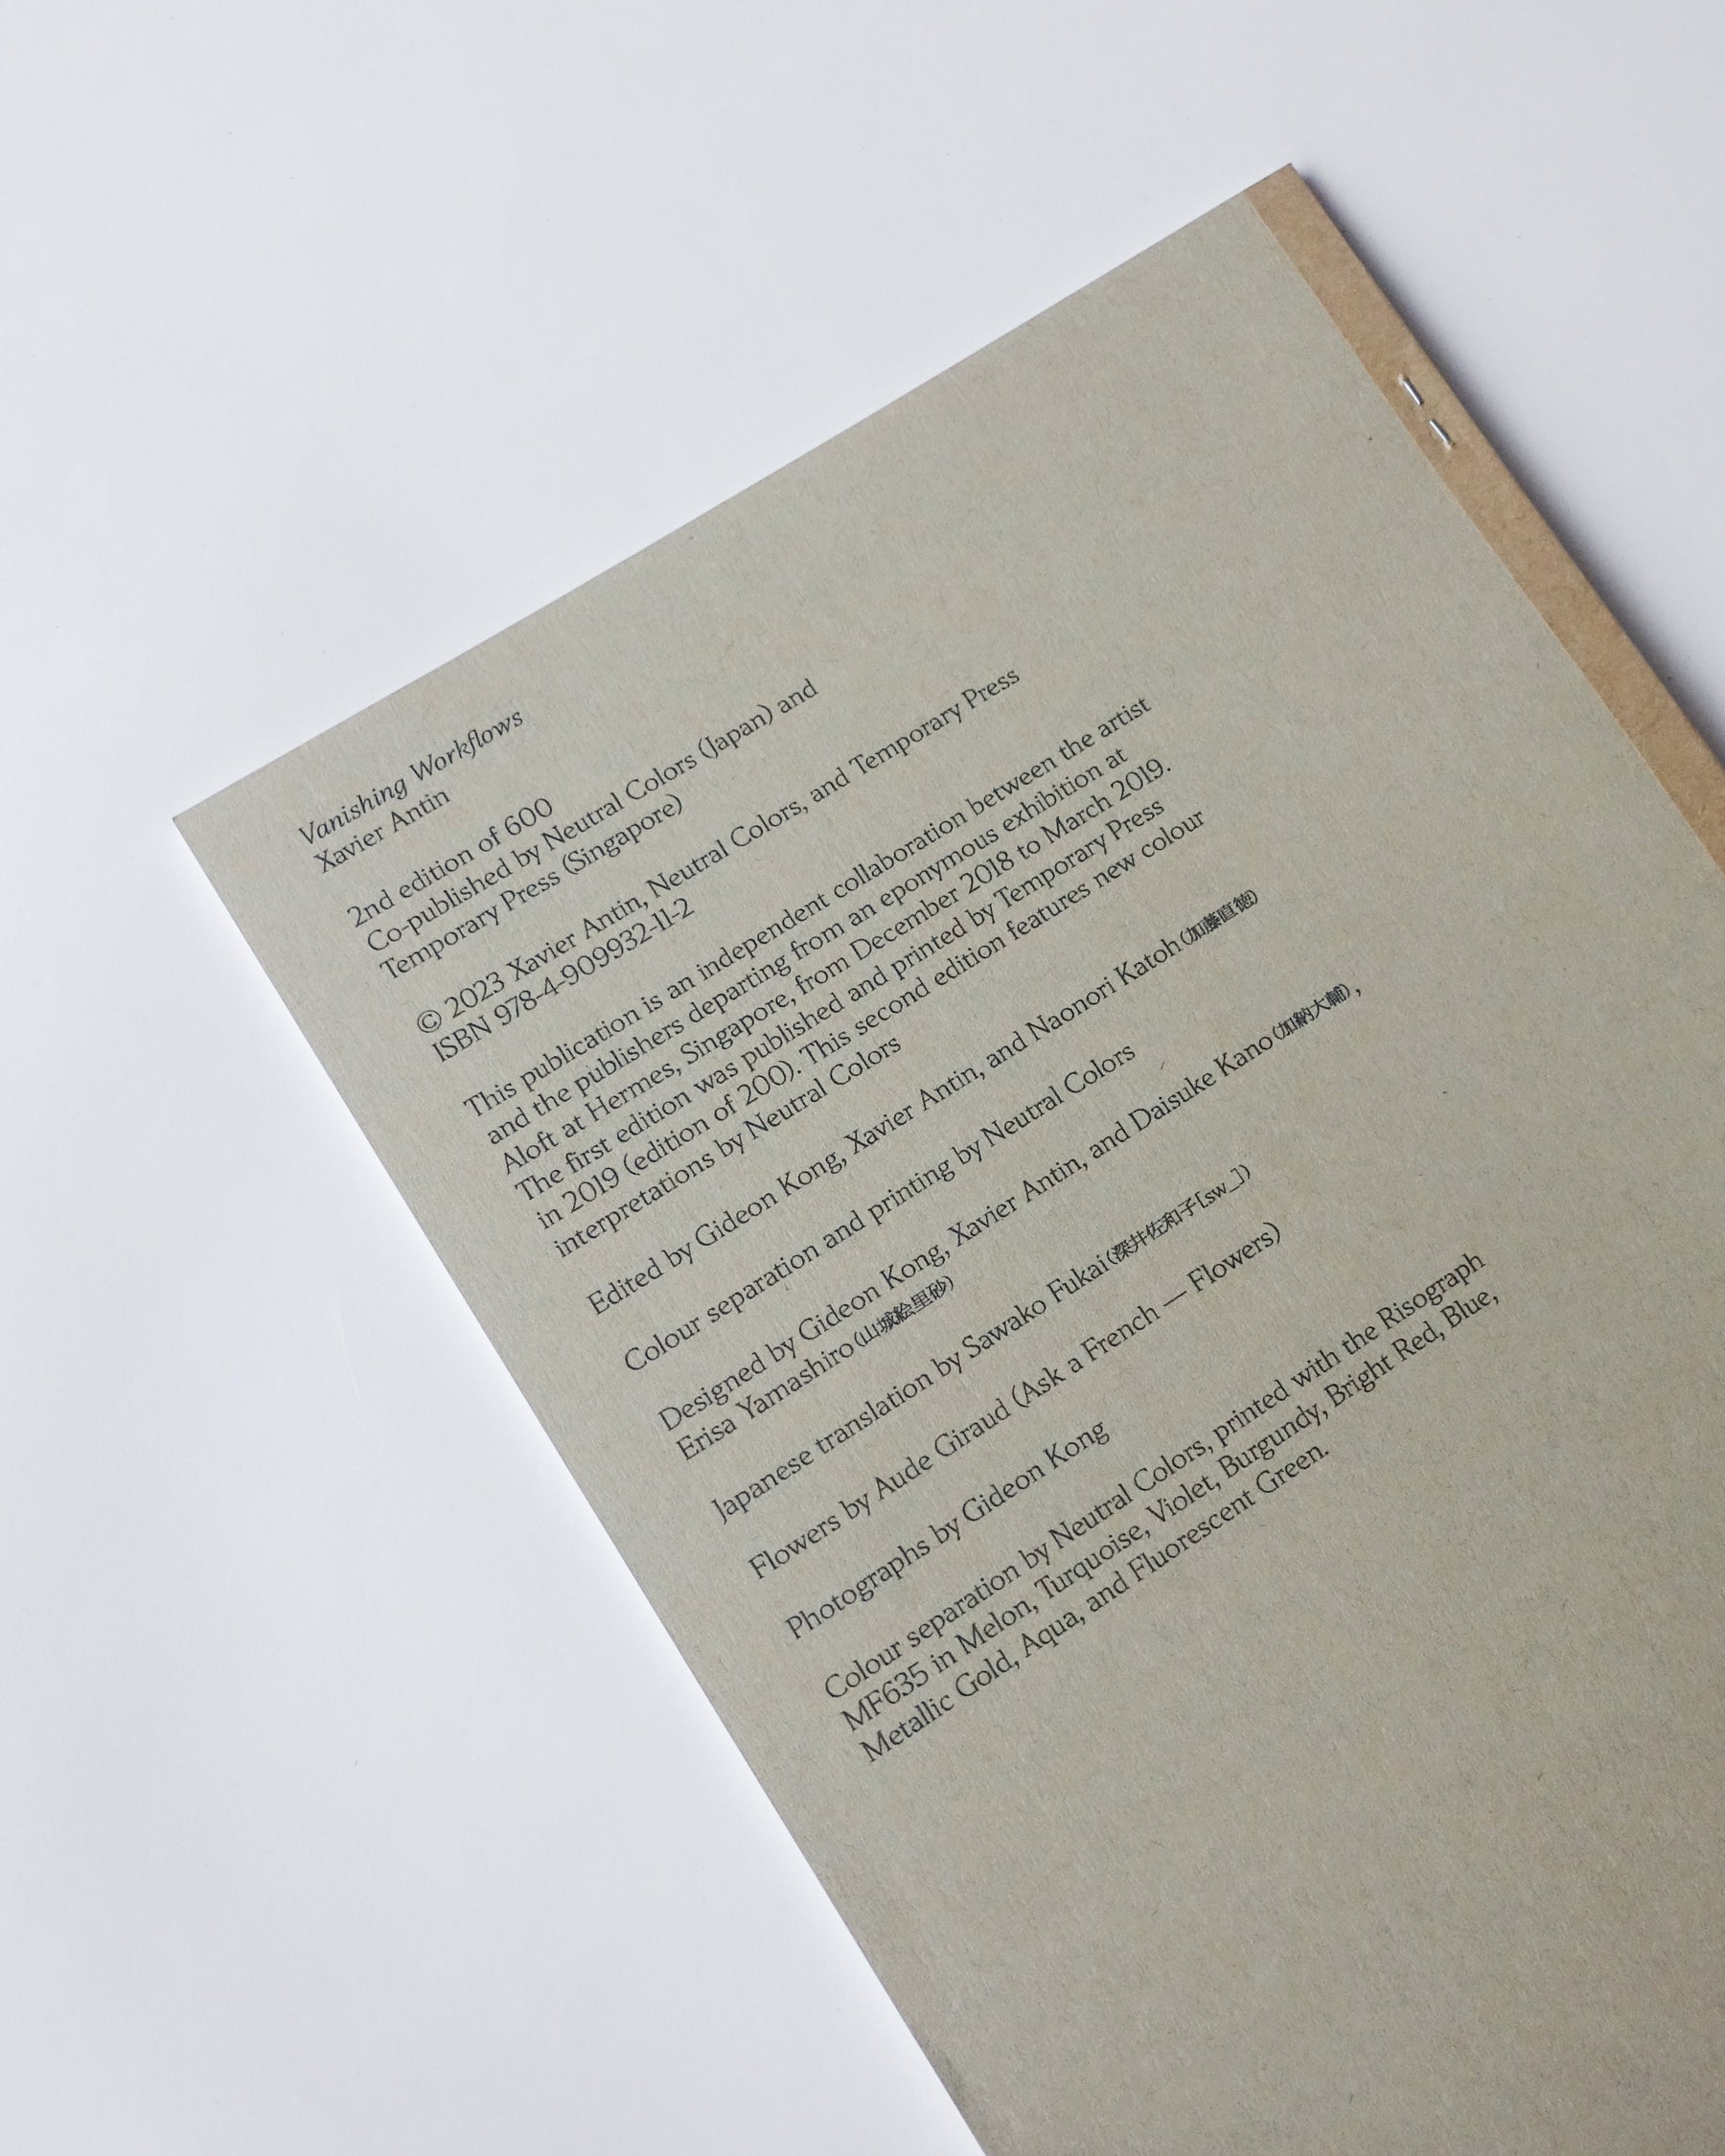 Vanishing Workflows
Xavier Antin
2nd edition of 600
Co-published by Neutral Colors (Japan) and
Temporary Press (Singapore)
© 2023 Xavier Antin, Neutral Colors, and Temporary Press
ISBN 978-4-909932-11-2
This publication is an independent collaboration between the artist
and the publishers departing from an eponymous exhibition at
Aloft at Hermes, Singapore, from December 2018 to March 2019.
The first edition was published and printed by Temporary Press
in 2019 (edition of 200). This second edition features new colour
interpretations by Neutral Colors
Edited by Gideon Kong, Xavier Antin, and Naonori Katoh (加藤直徳)
Colour separation and printing by Neutral Colors
Designed by Gideon Kong, Xavier Antin, and Daisuke Kano (加納大輔),
Erisa Yamashiro (山城絵里砂)
Japanese translation by Sawako Fukai (深井佐和子[sw_])
Flowers by Aude Giraud (Ask a French — Flowers)
Photographs by Gideon Kong
Colour separation by Neutral Colors, printed with the Risograph
MF635 in Melon, Turquoise, Violet, Burgundy, Bright Red, Blue,
Metallic Gold, Aqua, and Fluorescent Green.